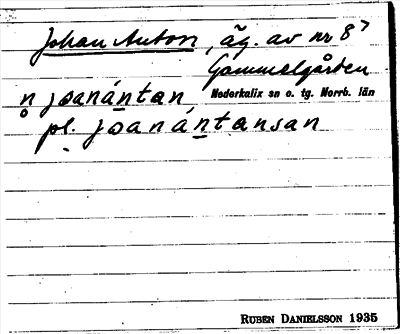 Johan Anton, äg. av nr 8⁷
Gammelgården
n̥ jɷanántan Nederkalix sn o. tg. Norrb. län
pl. jɷanántansan
RUBEN DANIELSSON 1935